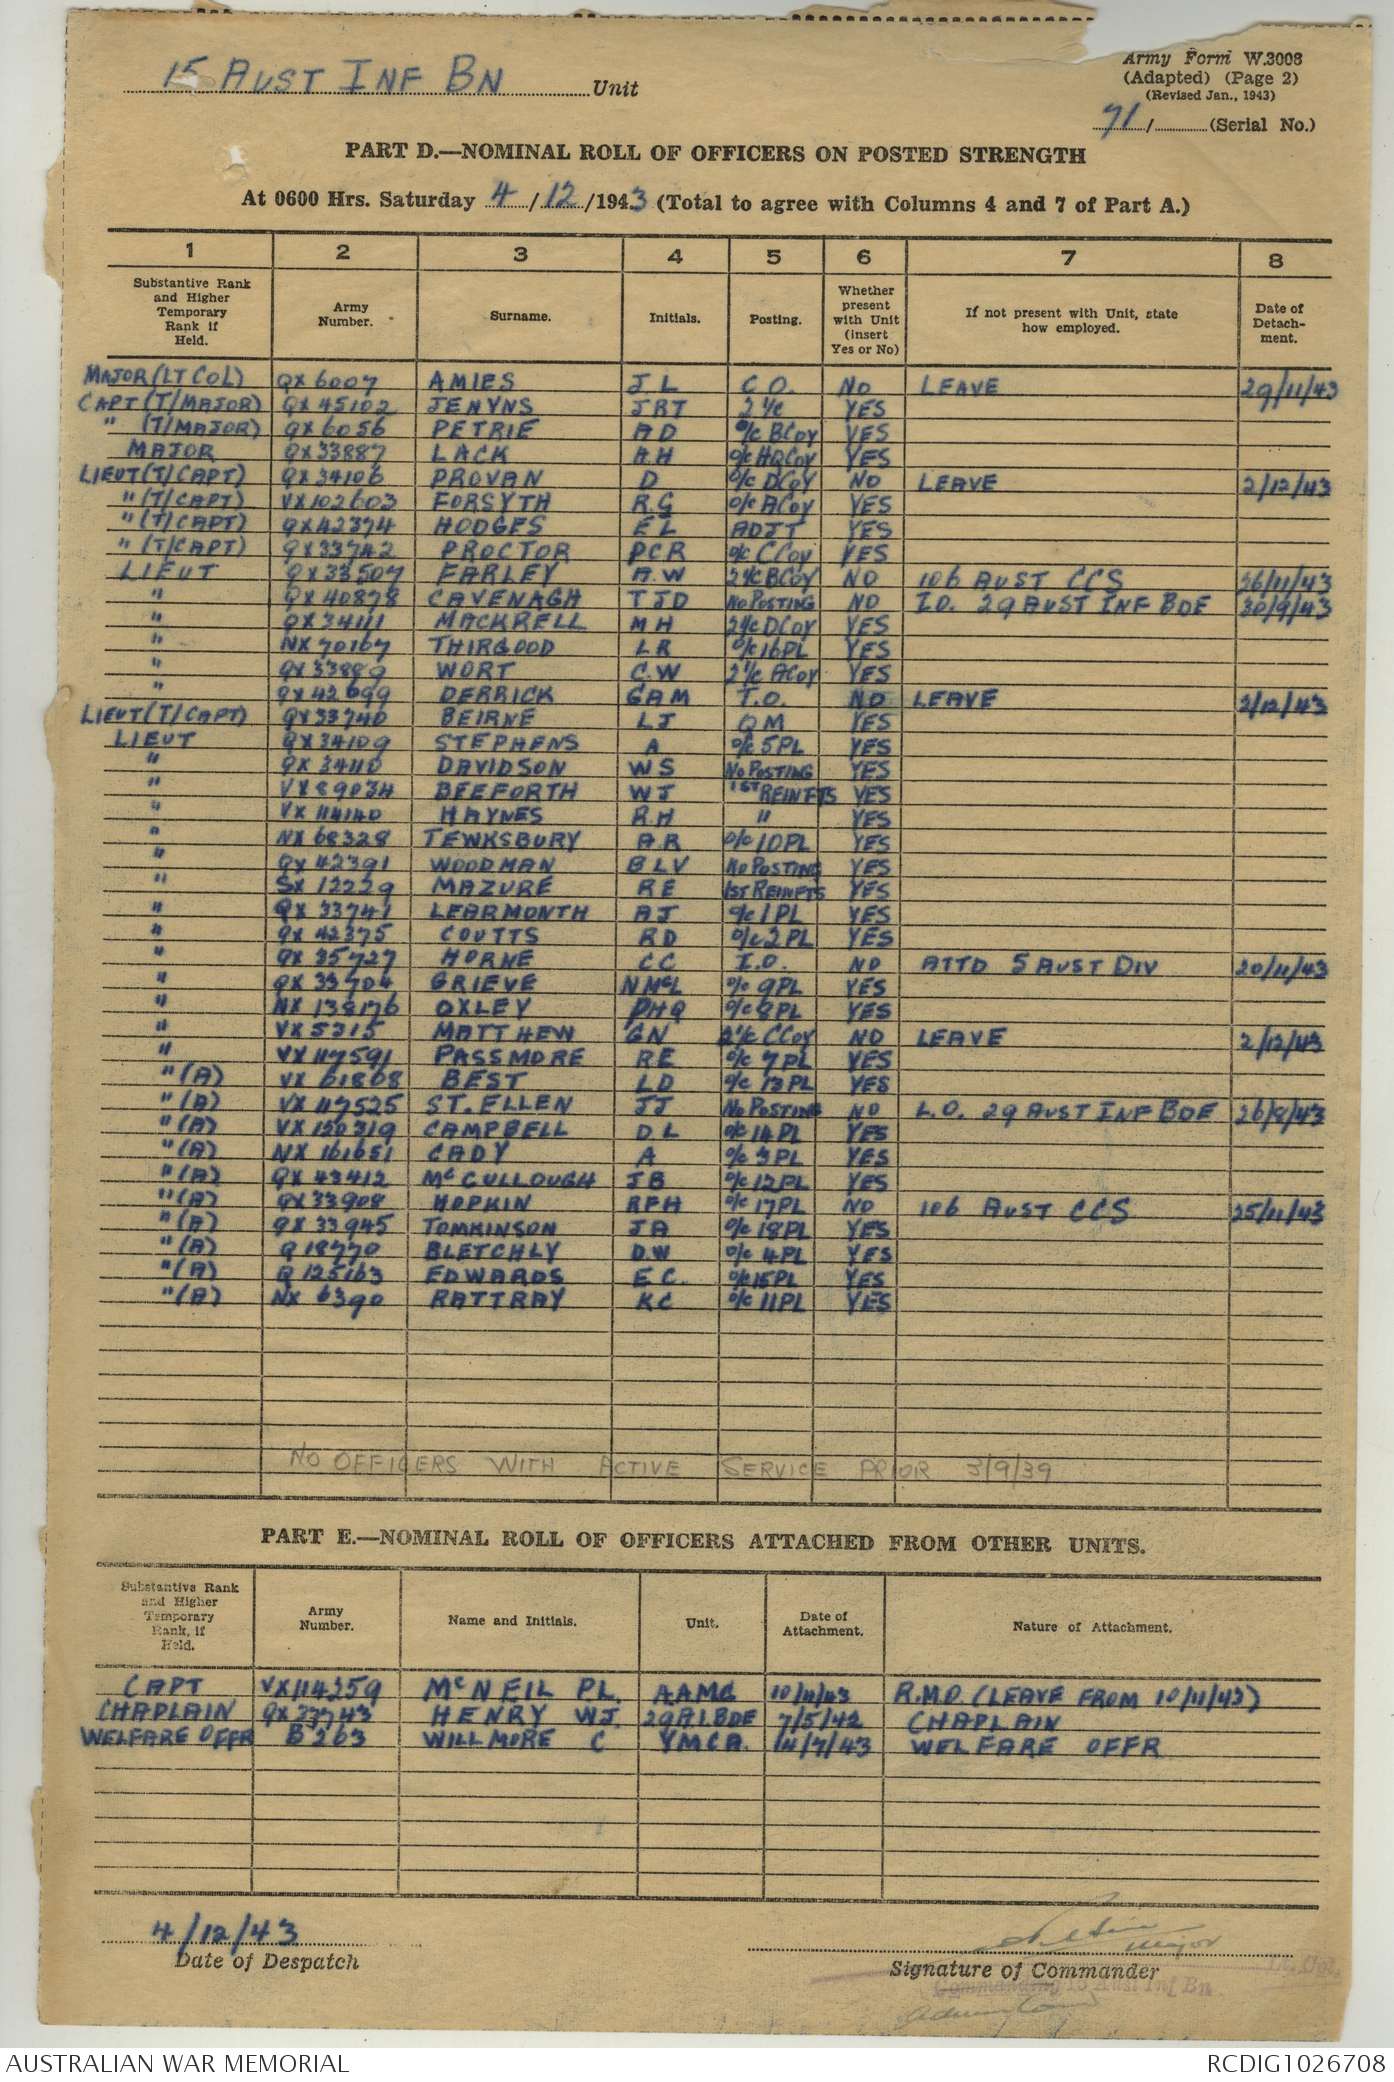 15 AUST INF BN Unit
Army Form W.3008
(Adapted) (Page 2)
(Revised Jan., 1943)
71/ (Serial No.)
PART D.—NOMINAL ROLL OF OFFICERS ON POSTED STRENGTH
At 0600 Hrs. Saturday 4/12/1943 (Total to agree with Columns 4 and 7 of Part A.)
1 2 3 4 5 6 7 8
Substantive Rank and Higher Temporary Rank if Held. Army Number. Surname. Initials. Posting. Whether present with Unit (insert Yes or No) If not present with Unit, state how employed. Date of Detachment.
MAJOR (LT COL) QX 6007 AMIES J L C.O. NO LEAVE 29/11/43
CAPT (T/MAJOR) QX 45102 JENYNS JRT 2 I/C YES
" (T/MAJOR) QX 6056 PETRIE A D O/C B COY YES
MAJOR QX 33887 LACK A.H O/C HQ COY YES
LIEUT (T/CAPT) QX 34106 PROVAN D O/C D COY NO LEAVE 2/12/43
" (T/CAPT) VX 102603 FORSYTH R.G O/C A COY YES
" (T/CAPT) QX 42374 HODGES E L ADJT YES
" (T/CAPT) QX 33742 PROCTOR PCR O/C C COY YES
LIEUT QX 33507 FARLEY A.W 2 I/C B COY NO 106 AUST CCS 26/11/43
" QX 40878 CAVENAGH T J D NO POSTING NO I.O. 29 AUST INF BDE 30/9/43
" QX 34111 MACKRELL M H 2 I/C D COY YES
" NX 70167 THIRGOOD L R O/C 16 PL YES
" QX 33889 WORT C.W 2 I/C A COY YES
" QX 42099 DERRICK GAM T.O. NO LEAVE 2/12/43
LIEUT (T/CAPT) QX 33740 BEIRNE L J QM YES
LIEUT QX 34109 STEPHENS A O/C 5 PL YES
" QX 34110 DAVIDSON W S NO POSTING YES
" VX 89034 BEEFORTH W J 1ST REINFTS YES
" VX 114140 HAYNES R.H " YES
" NX 68328 TEWKSBURY A.R O/C 10 PL YES
" QX 42391 WOODMAN B L V NO POSTING YES
" SX 12229 MAZURE R E 1ST REINFTS YES
" QX 33741 LEARMONTH A J O/C 1 PL YES
" QX 42375 COUTTS R D O/C 2 PL YES
" QX 35727 HORNE C C I.O. NO ATTD 5 AUST DIV 20/11/43
" QX 33704 GRIEVE N McL O/C 9 PL YES
" NX 138176 OXLEY PHQ O/C 8 PL YES
" VX 5315 MATTHEW GN 2 I/C C COY NO LEAVE 2/12/43
" VX 117591 PASSMORE RE O/C 7 PL YES
" (A) VX 61868 BEST L D O/C 13 PL YES
" (A) VX 117525 ST. ELLEN J J NO POSTING NO L.O. 29 AUST INF BDE 26/8/43
" (A) VX 120319 CAMPBELL D L O/C 14 PL YES
" (A) NX 161651 CADY A O/C 3 PL YES
" (A) QX 43412 McCULLOUGH J B O/C 12 PL YES
" (A) QX 33908 HOPKIN RFH O/C 17 PL NO 106 AUST CCS 25/11/43
" (A) QX 33945 TOMKINSON J A O/C 18 PL YES
" (A) Q 18770 BLETCHLY D.W O/C 4 PL YES
" (A) Q 125163 EDWARDS E C. O/C 15 PL YES
" (A) NX 6390 RATTRAY K C O/C 11 PL YES
NO OFFICERS WITH ACTIVE SERVICE PRIOR 3/9/39
PART E.—NOMINAL ROLL OF OFFICERS ATTACHED FROM OTHER UNITS.
Substantive Rank and Higher Temporary Rank, if Held. Army Number. Name and Initials. Unit. Date of Attachment. Nature of Attachment.
CAPT VX 114259 McNEIL P L. AAMC 10/11/43 R.M.O. (LEAVE FROM 10/11/43)
CHAPLAIN QX 33743 HENRY W J. 29 A I BDE 7/5/42 CHAPLAIN
WELFARE OFFR B 263 WILLMORE C YMCA. 14/7/43 WELFARE OFFR
4/12/43
Date of Despatch
Major
Signature of Commander
Lt. Col.
Commanding 15 Aust Inf Bn
AUSTRALIAN WAR MEMORIAL RCDIG1026708